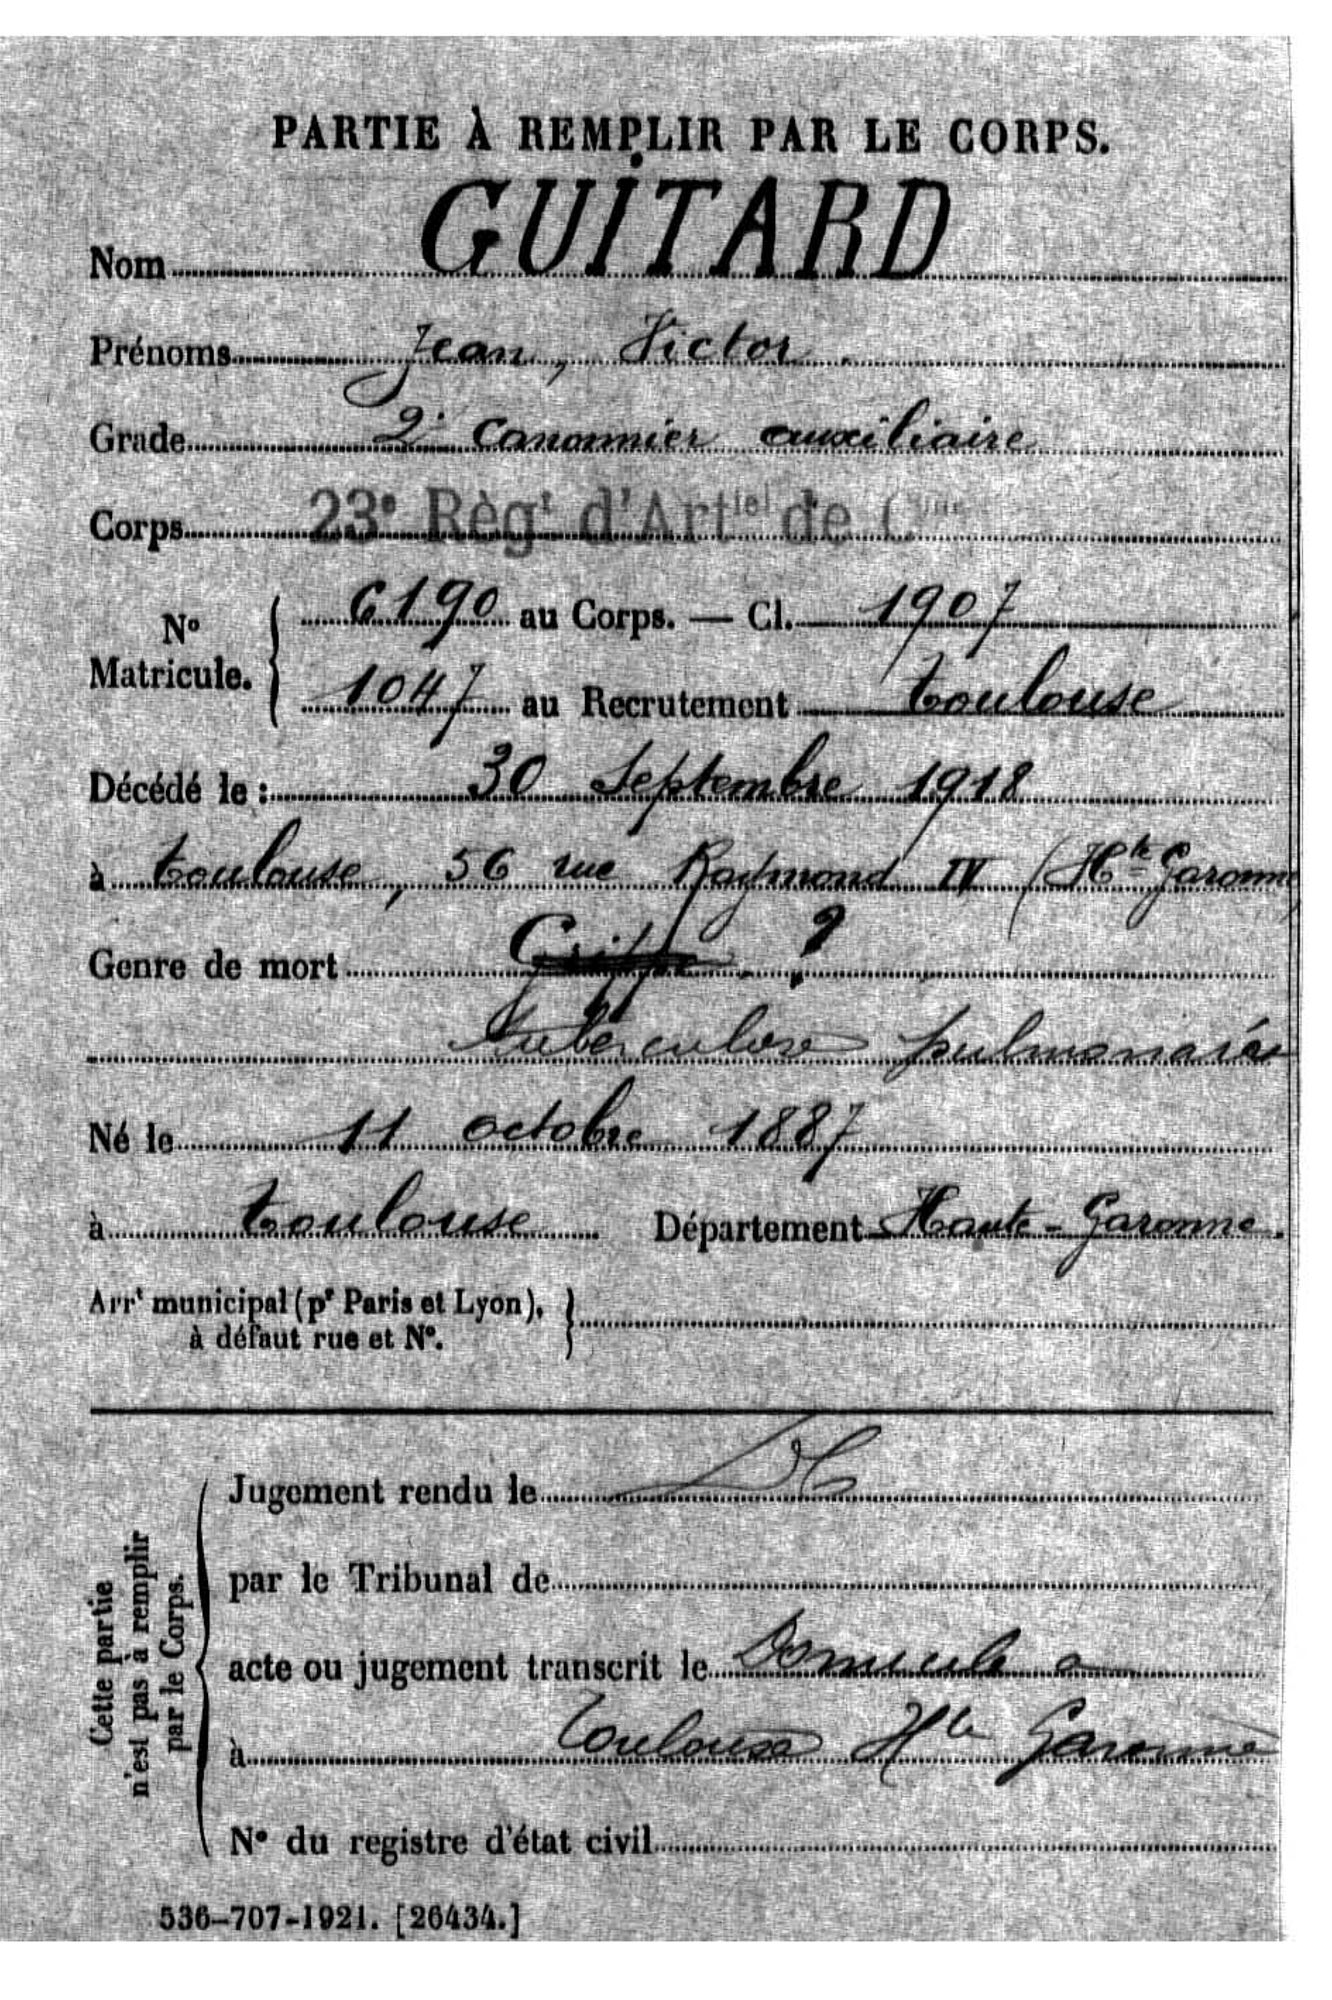 PARTIE À REMPLIR PAR LE CORPS.
Nom GUITARD
Prénoms Jean, Victor.
Grade 2e Canonnier auxiliaire
Corps 23e Règt d'Artiel de Cgne
N° Matricule. 6190 au Corps. — Cl. 1907
1047 au Recrutement Toulouse
Décédé le : 30 Septembre 1918
à Toulouse, 56 rue Raymond IV (Hte Garonne)
Genre de mort Grippe. ?
tuberculose pulmonaire
Né le 11 octobre 1887
à Toulouse Département Haute-Garonne.
Arrt municipal (pr Paris et Lyon),
à défaut rue et N°.
Jugement rendu le
par le Tribunal de
acte ou jugement transcrit le Domicile a
à Toulouse Hte Garonne
N° du registre d'état civil
Cette partie
n'est pas à remplir
par le Corps.
536-707-1921. [26434.]